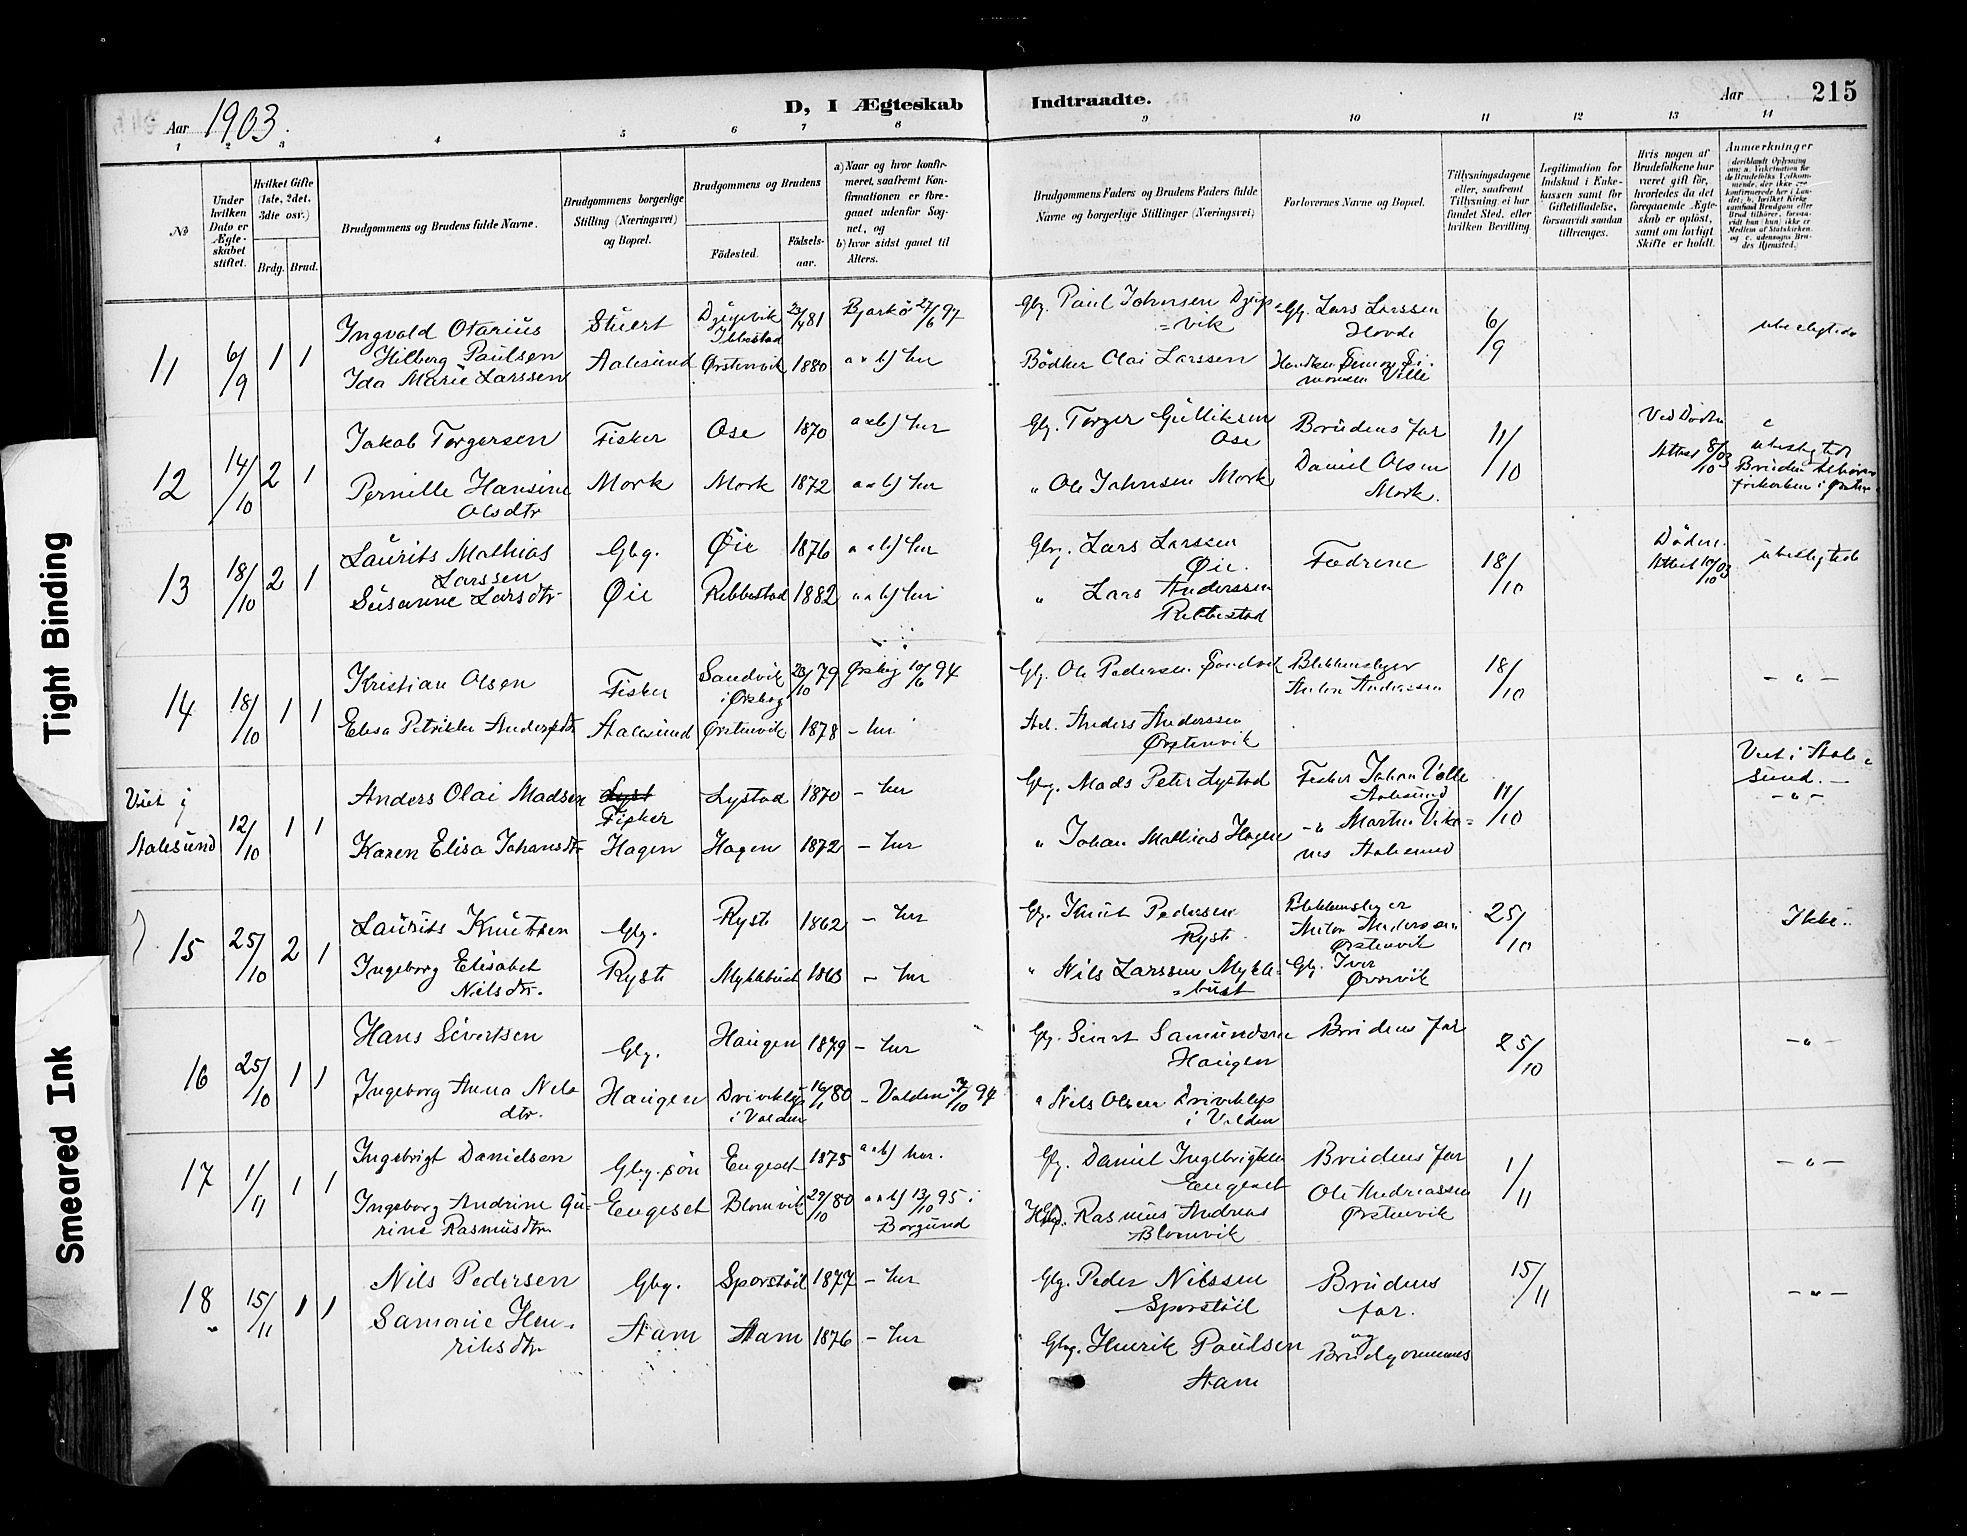 Tight Binding
Smeared Ink
Aar 1903.
D, I Ægteskab Indtraadte.
Aar 215
1 2 3 4 5 6 7 8 9 10 11 12 13 14
№
Under hvilken Dato er Ægteskabet stiftet.
Hvilket Gifte (1ste, 2det, 3die osv.)
Brdg. Brud.
Brudgommens og Brudens fulde Navne.
Brudgommens borgerlige Stilling (Næringsvei) og Bopæl.
Brudgommens og Brudens
Födested. Födselsaar.
a) Naar og hvor konfirmeret, saafremt Konfirmationen er foregaaet udenfor Sognet, og
b) hvor sidst gaaet til Alters.
Brudgommens Faders og Brudens Faders fulde Navne og borgerlige Stillinger (Næringsvei)
Forlovernes Navne og Bopæl.
Tillysningsdagene eller, saafremt Tillysning ei har fundet Sted, efter hvilken Bevilling.
Legitimation for Indskud i Enkekassen samt for Giftetilladelse, forsaavidt saadan tiltrænges.
Hvis nogen af Brudefolkene har været gift för, hvorledes da det foregaaende Ægteskab er oplöst, samt om lovligt Skifte er holdt.
Anmerkninger
11 6/9 1 1
Ingvald Otarius Hilberg Paulsen Stuert Djupvik Ibbestad 23/4 81 Bjarkö 27/6 97 Gbr. Paul Johnsen Djupvik Gbr. Lars Larssen Hovde 6/9 ubeslegtede
Ida Marie Larssen Aalesund Ørstenvik 1880 a & b) her Bödker Olai Larssen
12 14/10 2 1
Jakob Torgersen Fisker Ose 1870 a & b) her Gbr. Torger Gulliksen Ose Brudens far 11/10 Ved Döden Attest 8/10 03 ubeslegtede
Pernille Hansine Olsdtr Mork Mork 1872 a & b) her " Ole Johnsen Mork Daniel Olsen Mork.
13 18/10 2 1
Laurits Mathias Larssen Gbg. Øie 1876 a & b) her Gbg. Lars Larssen Øie. Fedrene 18/10 Döden. Attest 10/10 03 ubeslegtede
Susanne Larsdtr Øie Rebbestad 1882 a & b) her " Lars Anderssen Rebbestad
14 18/10 1 1
Kristian Olsen Fisker Sandvik i Ørskog 23/10 79 Ørskog 10/6 94 Gbg. Ole Pedersen Sandvik Blikkenslager Anton Andersen 18/10 - " -
Elisa Petrikke Andersdtr Aalesund Ørstenvik 1878 - her Anders Anderssen Ørstenvik
Viet i Aalesund 12/10 1 1
Anders Olai Madsen Fisker Lystad 1870 - her Gbg. Mads Peter Lystad Fisker Johan Volle Aalesund 11/10 Viet i Aalesund. - " -
Karen Elisa Johansdtr Hagen Hagen 1872 - her " Johan Mathias Hagen - " Martin Vikenes Aalesund
15 25/10 2 1
Laurits Knutsen Gbg. Ryste 1862 - her Gbg. Knut Pedersen Ryste Blikkenslager Anton Anderssen Ørstenvik 25/10 Ikke.
Ingeborg Elisabet Nilsdtr. Ryste Myklebust 1863 - her " Nils Larssen Myklebust Gbg. Iver Øvrevik
16 25/10 1 1
Hans Sivertsen Gbg. Haugen 1879 - her Gbg. Sivert Samundsen Haugen Brudens far 25/10 - " -
Ingeborg Anna Nilsdtr. Haugen Driveklep i Volden 16/1 80 - Volden 94 " Nils Olsen Driveklep i Volden
17 1/11 1 1
Ingebrigt Danielsen Gbg. sön Engeset 1875 a & b) her. Gbg. Daniel Ingebrigtsen Engeset Brudens far 1/11 - " -
Ingeborg Andrine Gurine Rasmusdtr Engeset Blomvik 29/10 80 a & b) 13/10 95 i Borgund Rasmus Andreas Blomvik Ole Andreassen Ørstenvik
18 15/11 1 1
Nils Pedersen Gbg. Sporstöil 1877 - her Gbg. Peder Nilssen Sporstöil Brudens far. 15/11 - " -
Samonie Henriksdtr Aam Aam 1876 - her Gbg. Henrik Paulsen Aam og Brudgommens